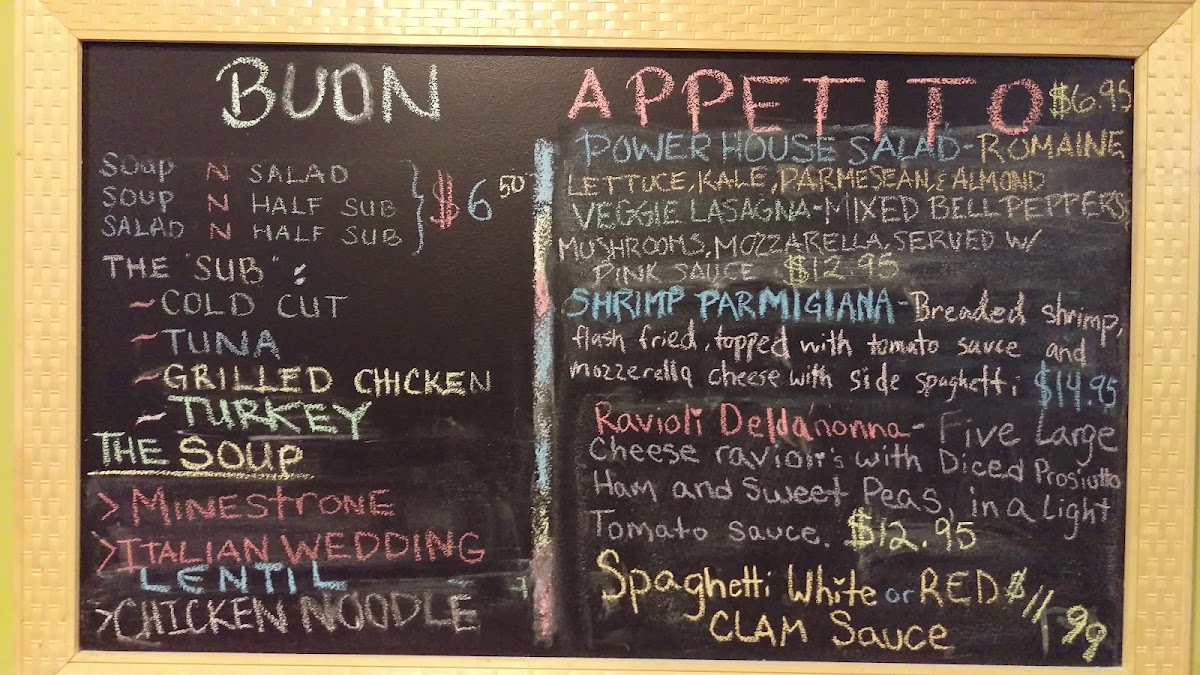 BUON APPETITO
SOUP N SALAD
SOUP N HALF SUB
SALAD N HALF SUB
$6.50
THE "SUB" :
~COLD CUT
~TUNA
~GRILLED CHICKEN
~TURKEY
THE SOUP
>MINESTRONE
>ITALIAN WEDDING
LENTIL
>CHICKEN NOODLE
$6.95
POWER HOUSE SALAD-ROMAINE
LETTUCE, KALE, PARMESEAN, & ALMOND
VEGGIE LASAGNA-MIXED BELL PEPPERS
MUSHROOMS, MOZZARELLA, SERVED W/
PINK SAUCE $12.95
SHRIMP PARMIGIANA-Breaded shrimp,
flash fried, topped with tomato sauce and
mozzerella cheese with side spaghetti $14.95
Ravioli Deldanonna- Five Large
Cheese ravioli's with Diced Prosiutto
Ham and Sweet Peas, in a Light
Tomato sauce. $12.95
Spaghetti White or RED $11.99
CLAM Sauce